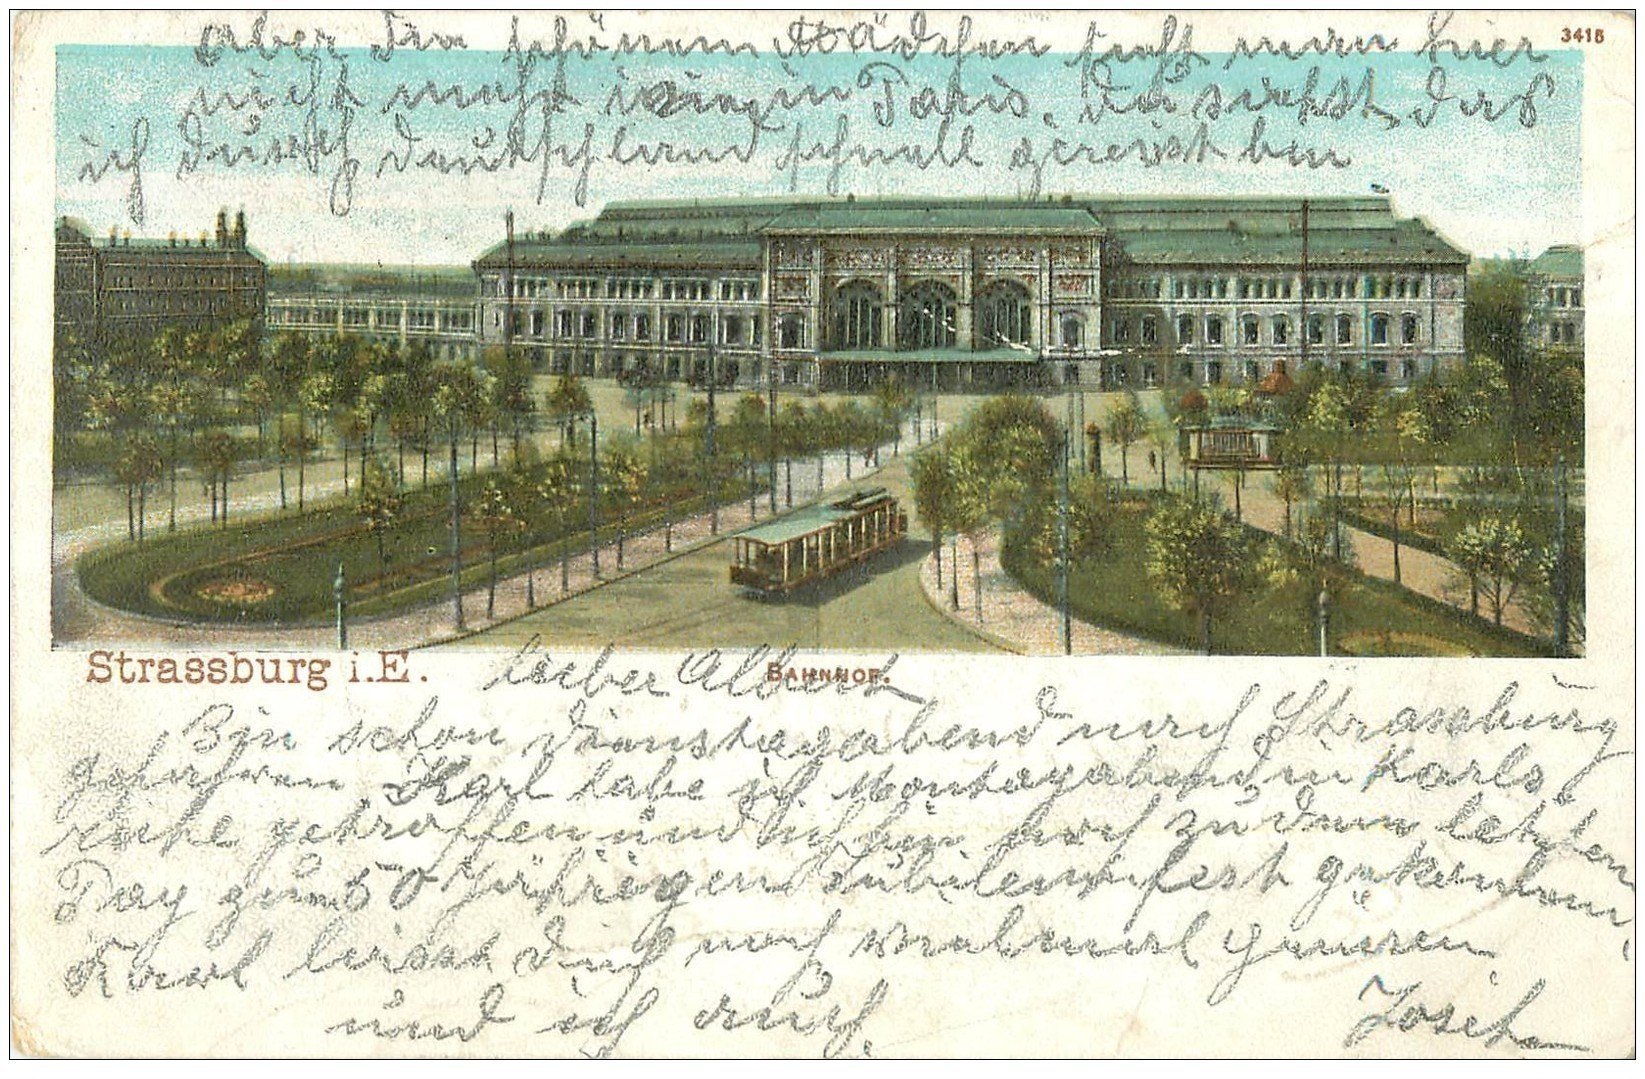 Aber die schönen Mädchen sieht man hier
nicht mehr wie in Paris. Du siehst das
ich durch Deutschland schnell gereist bin
3418
Strassburg i. E.
BAHNHOF.
Lieber Albert
Bin schon Dienstagabend nach Strassburg
gefahren Karl habe ich Montagabend in Karls
ruhe getroffen und ich bin noch zu dem letzten
Tag zum 50 Jährigen Jubiläumsfest gekommen,
Karl lässt Dich noch vielmal grüssen
und ich auch.
Josef